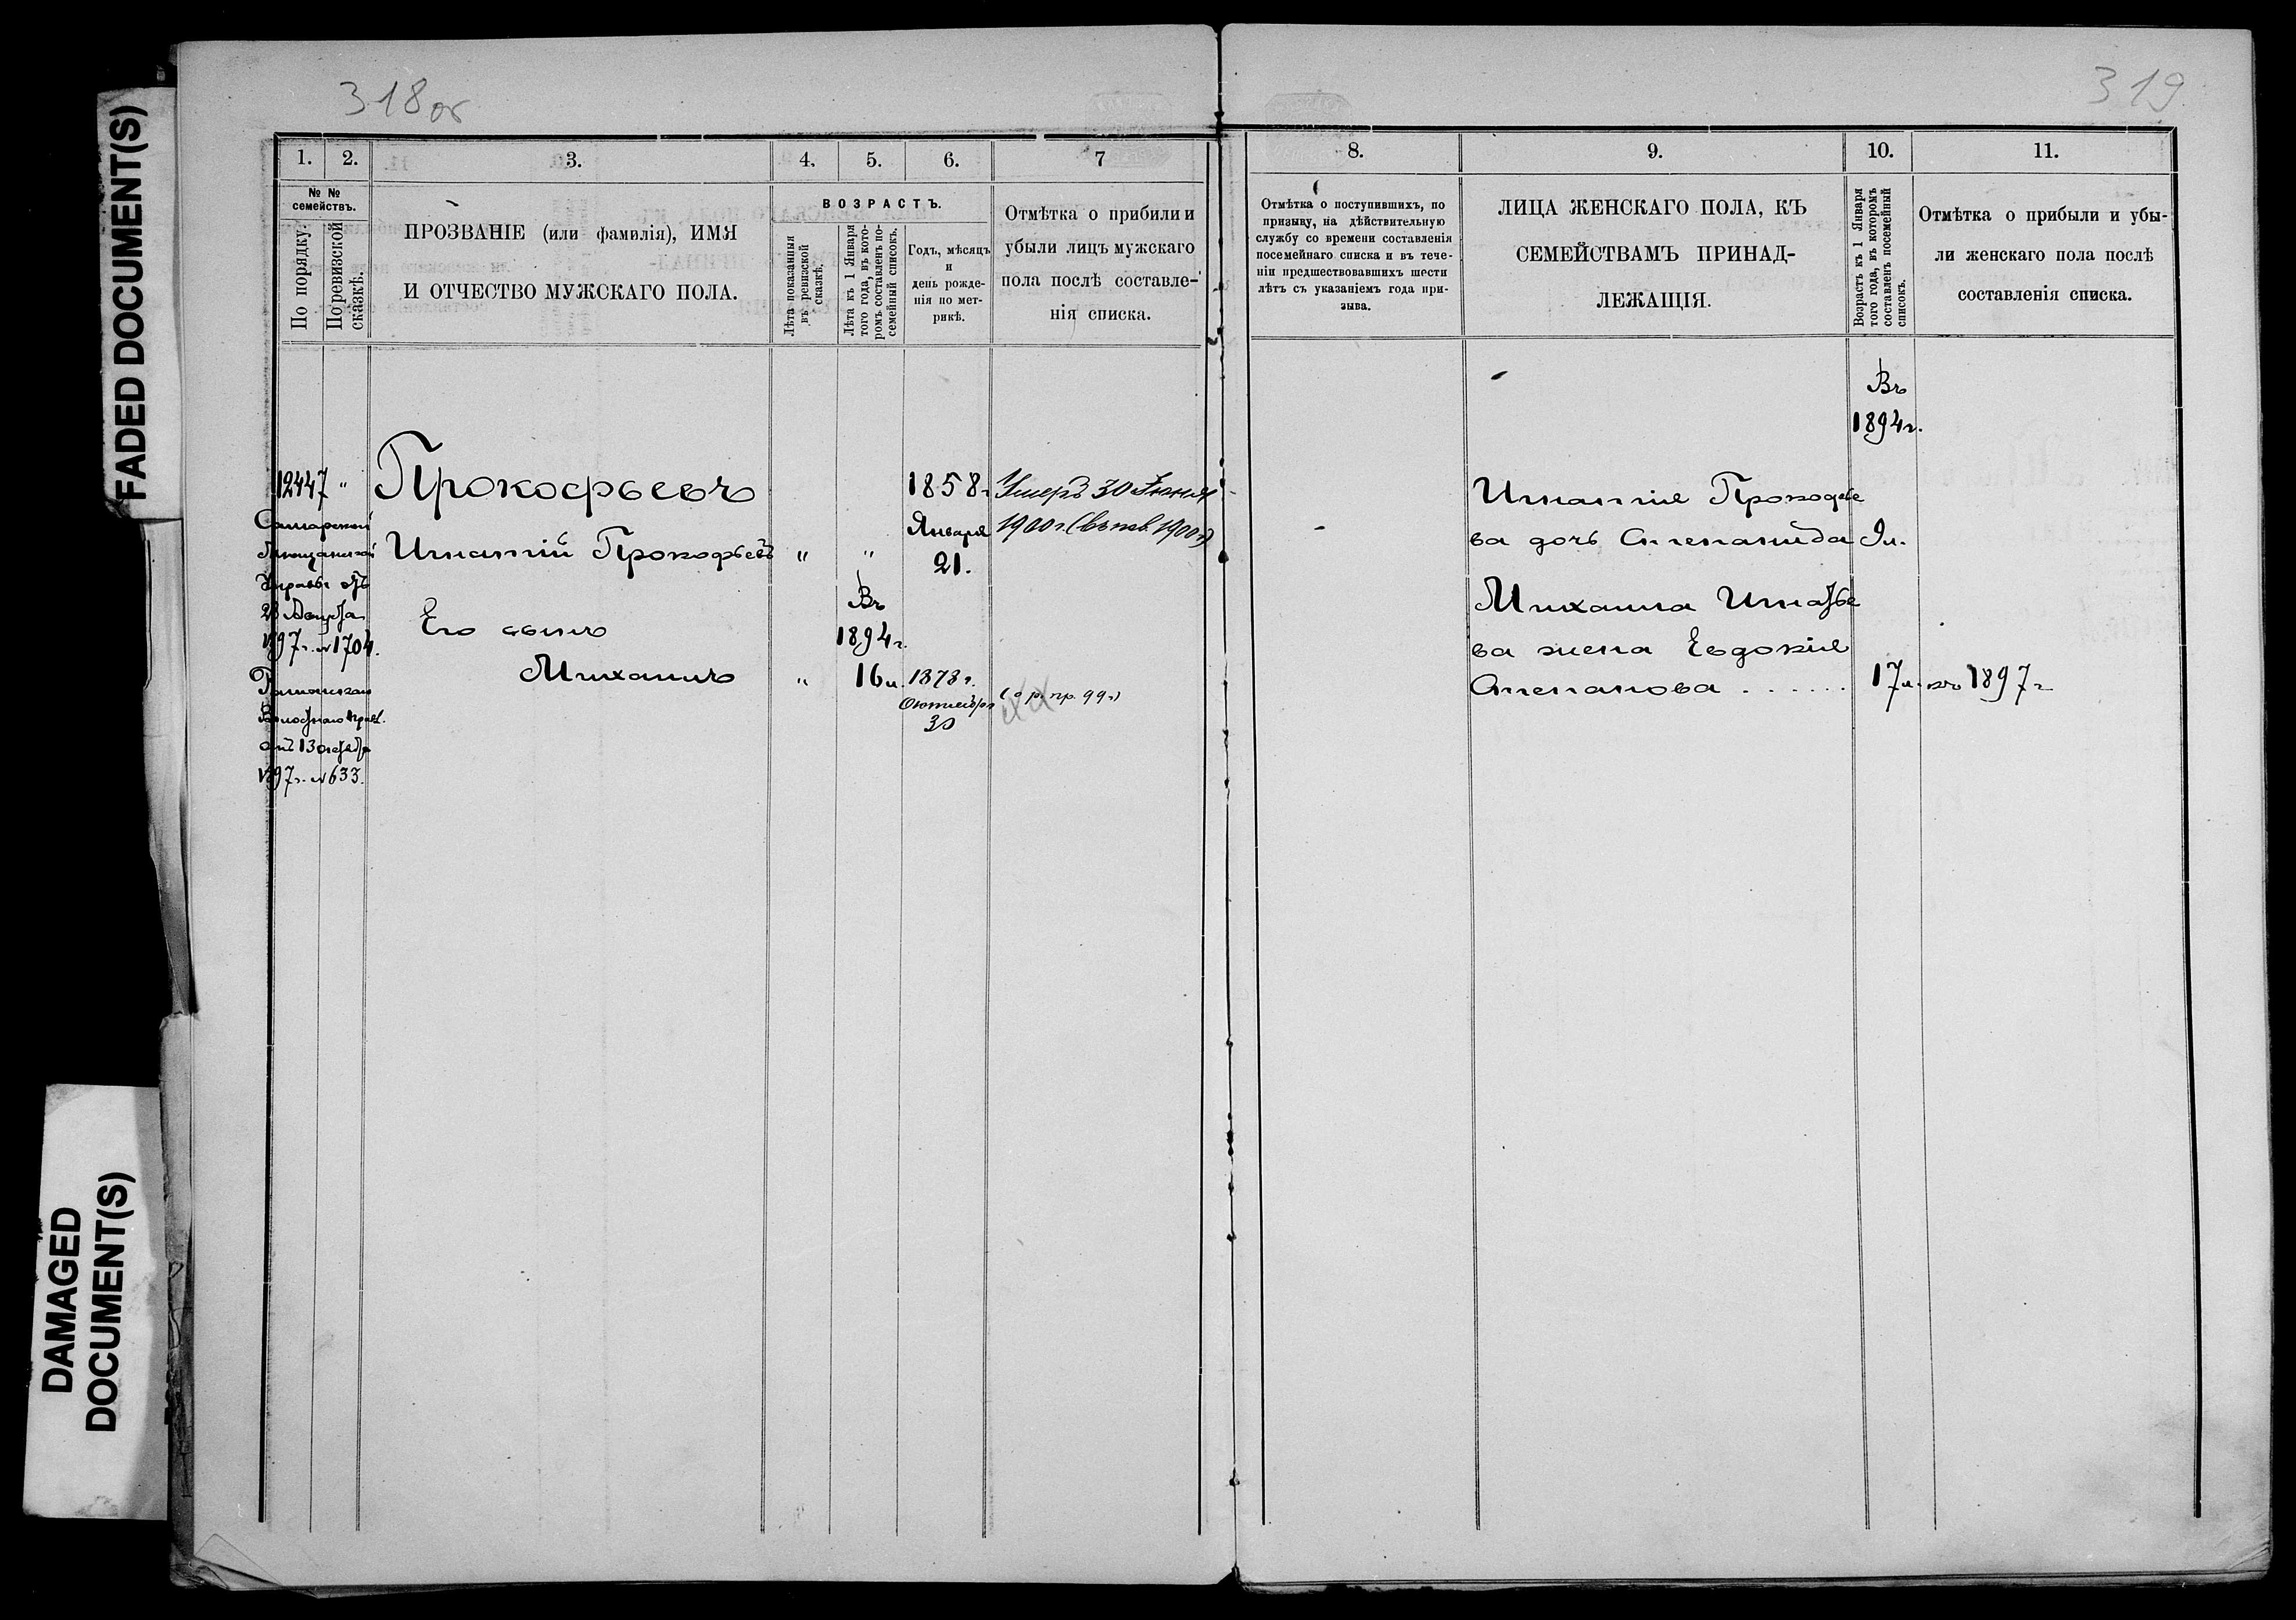 FADED DOCUMENT(S)
DAMAGED
DOCUMENT(S)
318 об
1. 2. 3. 4. 5. 6. 7
№ №
семействъ.
По порядку.
По ревизской
сказкѣ.
ПРОЗВАНІЕ (или фамилія), ИМЯ
И ОТЧЕСТВО МУЖСКАГО ПОЛА.
ВОЗРАСТЪ.
Лѣта показанныя
въ ревизской
сказкѣ.
Лѣта къ 1 Января
того года, въ кото-
ромъ составленъ по-
семейный списокъ.
Годъ, мѣсяцъ
и
день рожде-
нія по мет-
рикѣ.
Отмѣтка о прибыли и
убыли лицъ мужскаго
пола послѣ составле-
нія списка.
12447 "
Самарской
Мѣщанской
Управы отъ
28 Августа
1897 г. № 1704.
Волостнаго Правл.
отъ 13 октября
1897 г. № 633.
Прокофьевъ
Игнатій Прокофьевъ " "
1858 г.
Января
21.
Умеръ 30 Іюня
1900 г. (въ пос. 1900 г.)
Его сынъ
Въ
1894 г.
Михаилъ " 16 л. 1878 г.
Октября
30
(о р. пр. 99 г.)
319
8. 9. 10. 11.
Отмѣтка о поступившихъ, по
призыву, на дѣйствительную
службу со времени составленія
посемейнаго списка и въ тече-
ніи предшествовавшихъ шести
лѣтъ съ указаніемъ года при-
зыва.
ЛИЦА ЖЕНСКАГО ПОЛА, КЪ
СЕМЕЙСТВАМЪ ПРИНАД-
ЛЕЖАЩІЯ.
Возрастъ къ 1 Января
того года, въ которомъ
составленъ посемейный
списокъ.
Отмѣтка о прибыли и убы-
ли женскаго пола послѣ
составленія списка.
Въ
1894 г.
Игнатія Прокофье
ва дочь Степанида 9 л.
Михаила Игнатье
ва жена Евдокія
Степанова . . . . . . 17 л. въ 1897 г.